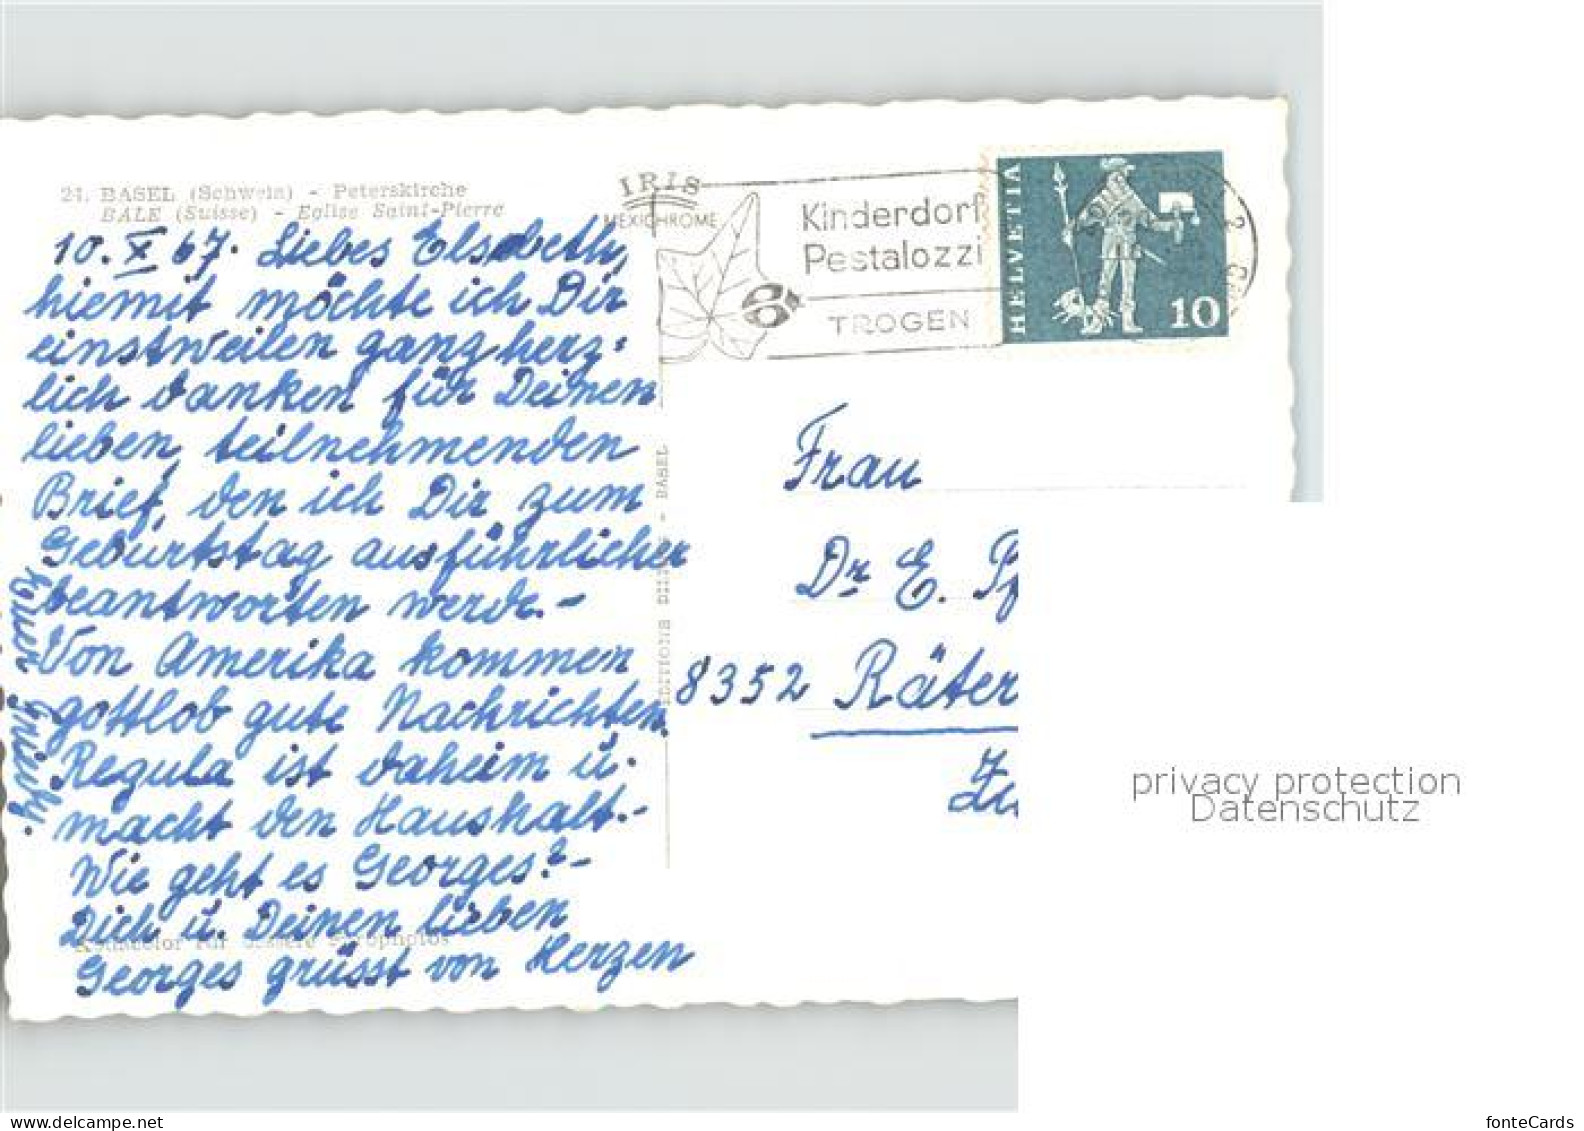 21. BASEL (Schweiz) - Peterskirche
BALE (Suisse) - Eglise Saint-Pierre
IRIS
MEXICHROME
Kinderdorf
Pestalozzi
TROGEN
HELVETIA
10
10. X 67. Liebes Elsabeth,
hiemit möchte ich Dir
einstweilen ganz herz=
lich danken für Deinen
lieben, teilnehmenden
Brief, den ich Dir zum
Geburtstag ausführlicher
beantworten werde. -
Von Amerika kommen
gottlob gute Nachrichten.
Regula ist daheim u.
macht den Haushalt. -
Wie geht es Georges? -
Dich u. Deinen lieben
Georges grüsst von Herzen
EDITIONS - BASEL
Frau
Dr. E. Pf
8352 Räter
Zü
privacy protection
Datenschutz
fonteCards